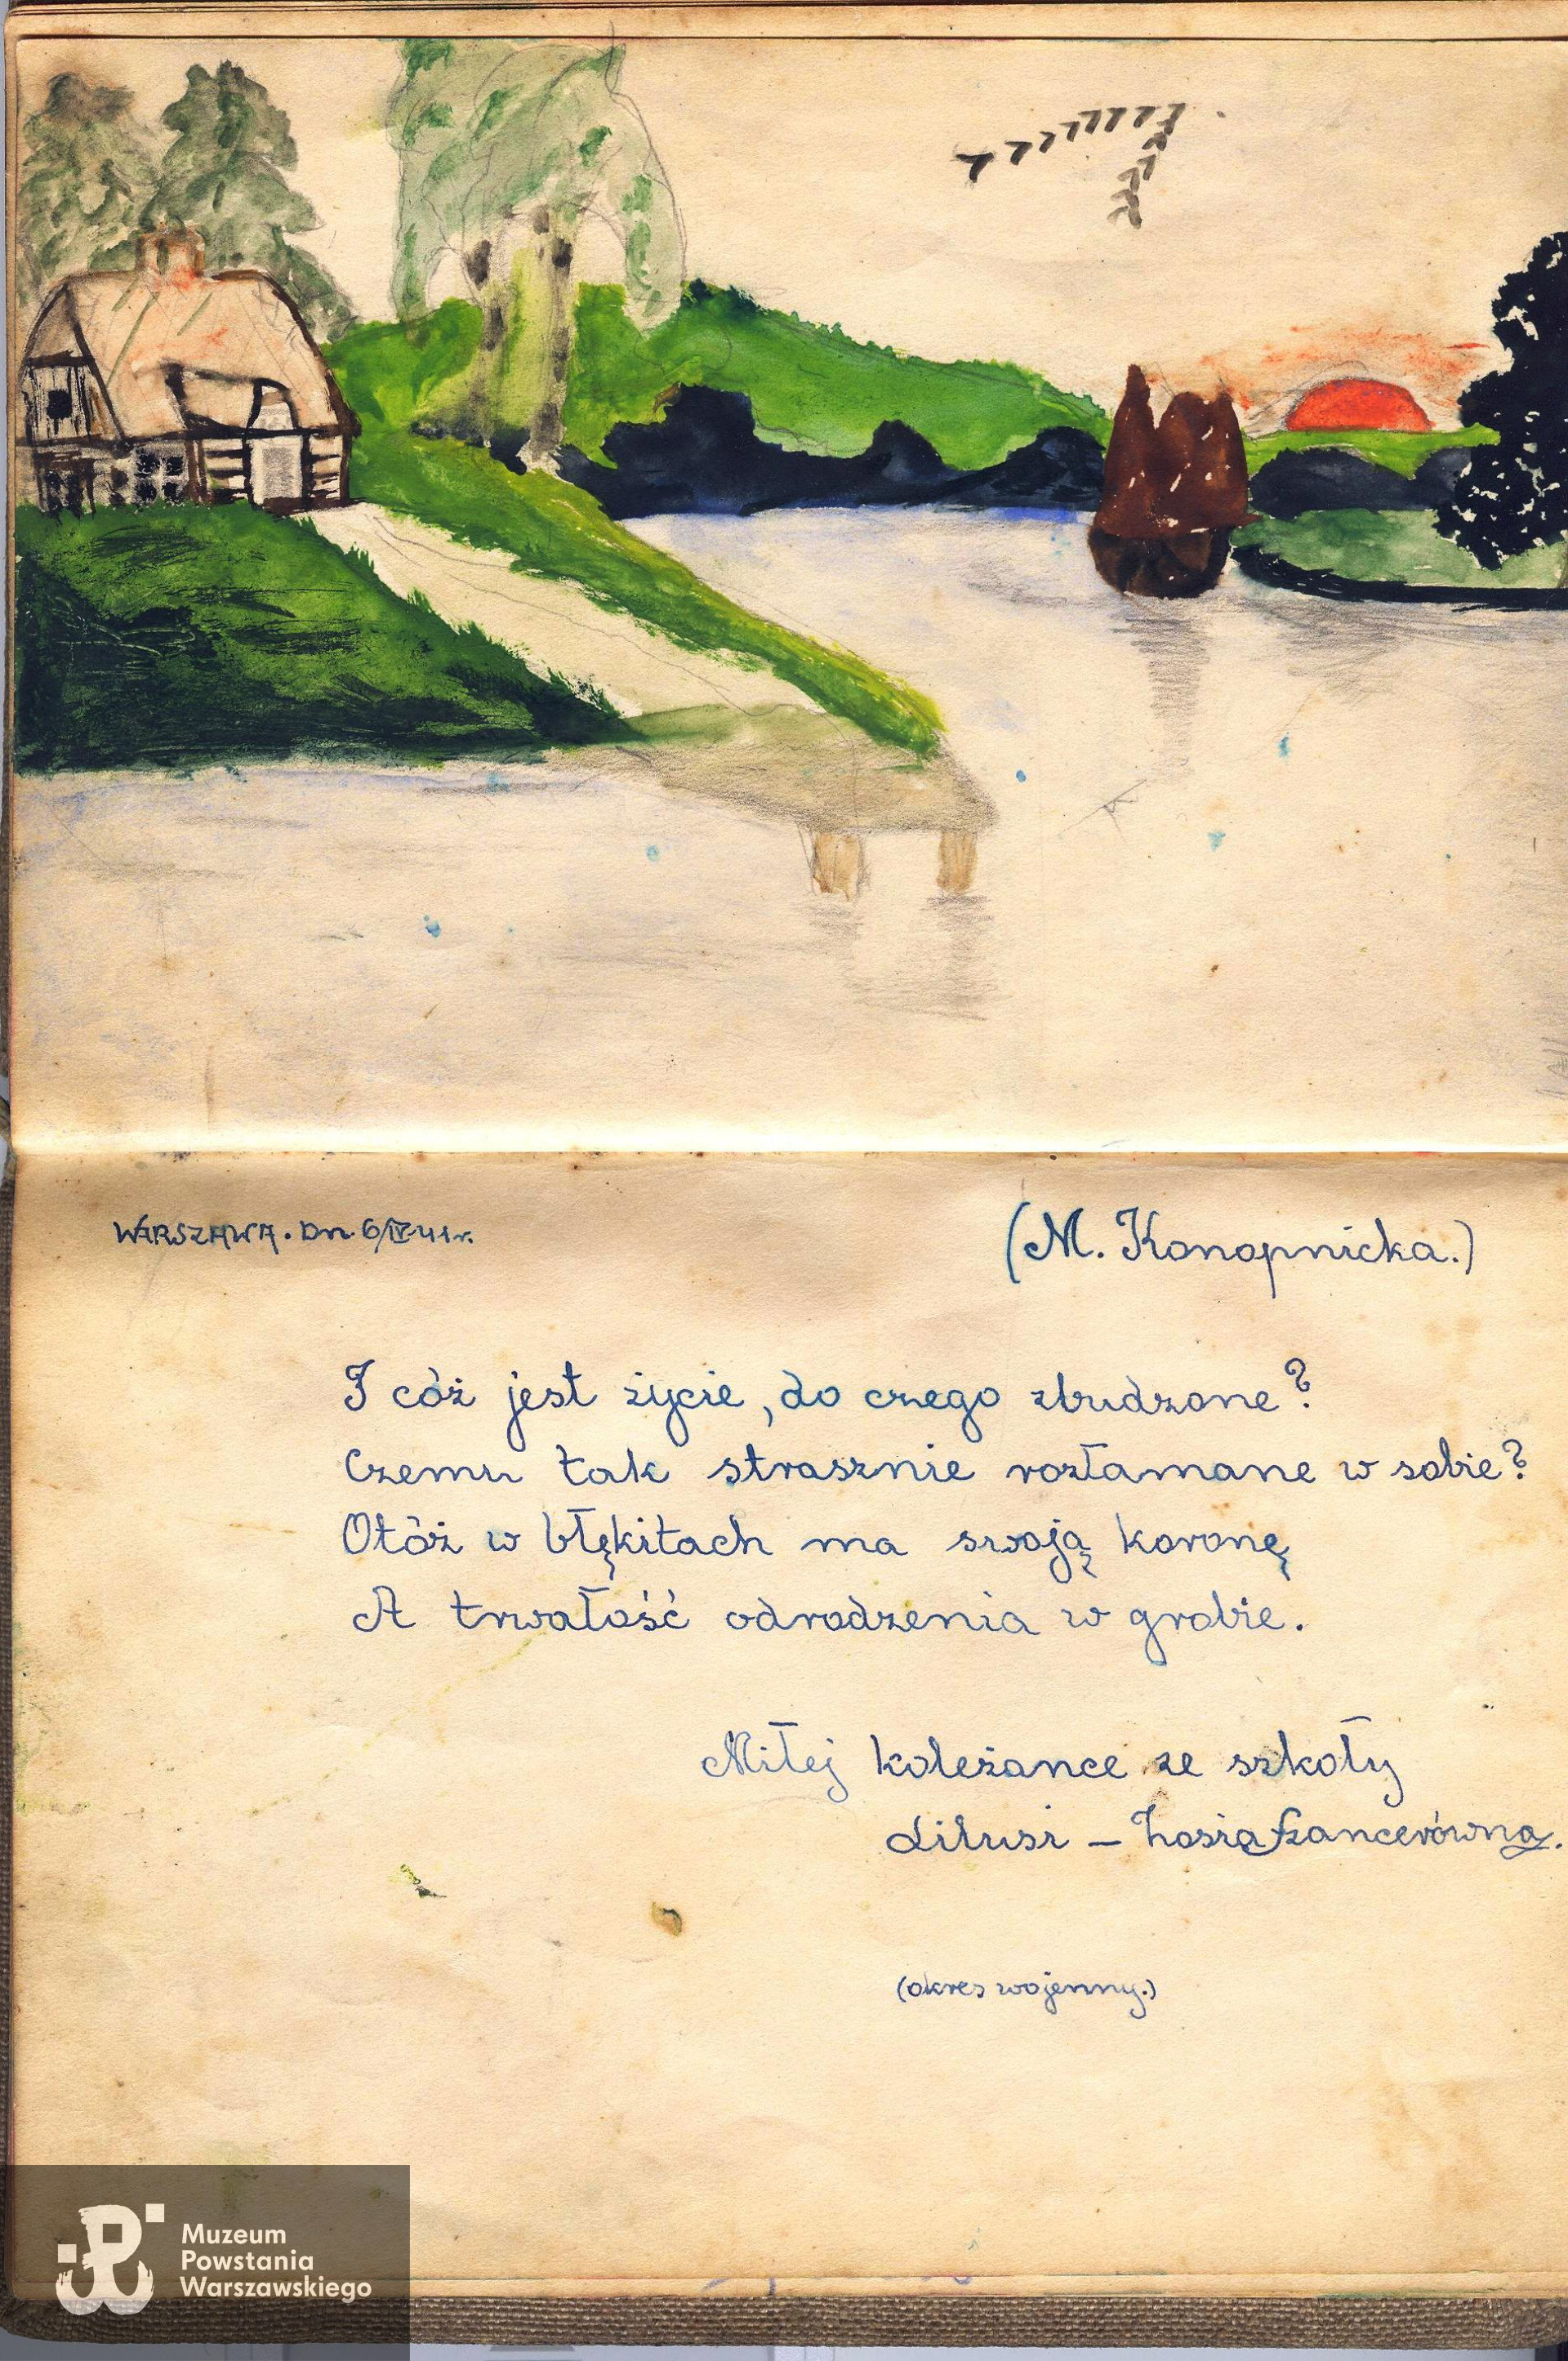 WARSZAWA. Dn. 6/IV 41 r.
(M. Konopnicka.)
I cóż jest życie, do czego zbudzone?
Czemu tak strasznie rozłamane w sobie?
Otóż w błękitach ma swoją koronę
A trwałość odrodzenia w grobie.
Miłej koleżance ze szkoły
Lilusi – Zosia Szancerówna.
(okres wojenny.)
Muzeum
Powstania
Warszawskiego